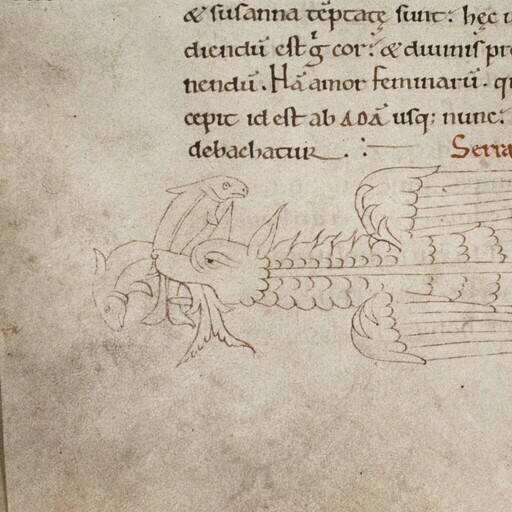 & susanna tēptatę sunt: hęc u
diendū est g̊ cor: & diuinis pre
nendū. Hā amor feminarū. qu
cepit id est ab ADĀ usq; nunc:
debachatur.
Serra